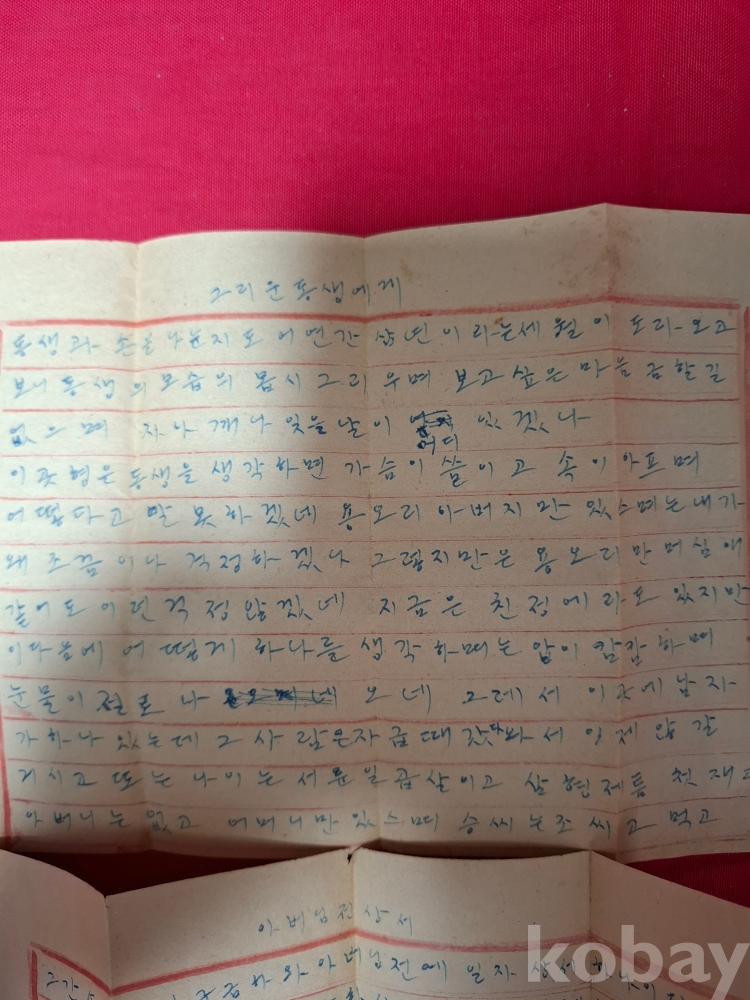 그리운 동생에게
동생과 손을 나눈지도 어연간 삼년이라는 세월이 도라오고
보니 동생의 모습의 몹시 그리우며 보고싶은 마음 금할길
없으며 자나 깨나 잊을날이 어디 있겠나
이곳 형은 동생을 생각하면 가슴이 쓸이고 속이 아프며
어떻다고 말 못하겠네 용오리 아버지만 있스며는 내가
왜 조끔이나 걱정하겠나 그렇지만은 용오리만 머심애
같어도 이런 걱정 않겠네 지금은 친정에라도 있지만
이다음에 어떻게 하나를 생각하며는 앞이 캄캄하며
눈물이 절로 나 오네 그레서 이곳에 남자
가 하나 있는데 그 사람은 자급때 갔다와서 이제 않갈
거시고 또는 나이는 서른일곱살이고 삼현제틈 첫재고
아버니는 없고 어머니만 있스며 승씨는 조씨고 먹고
아버님전 상서
아버님전에 일자 상서
kobay